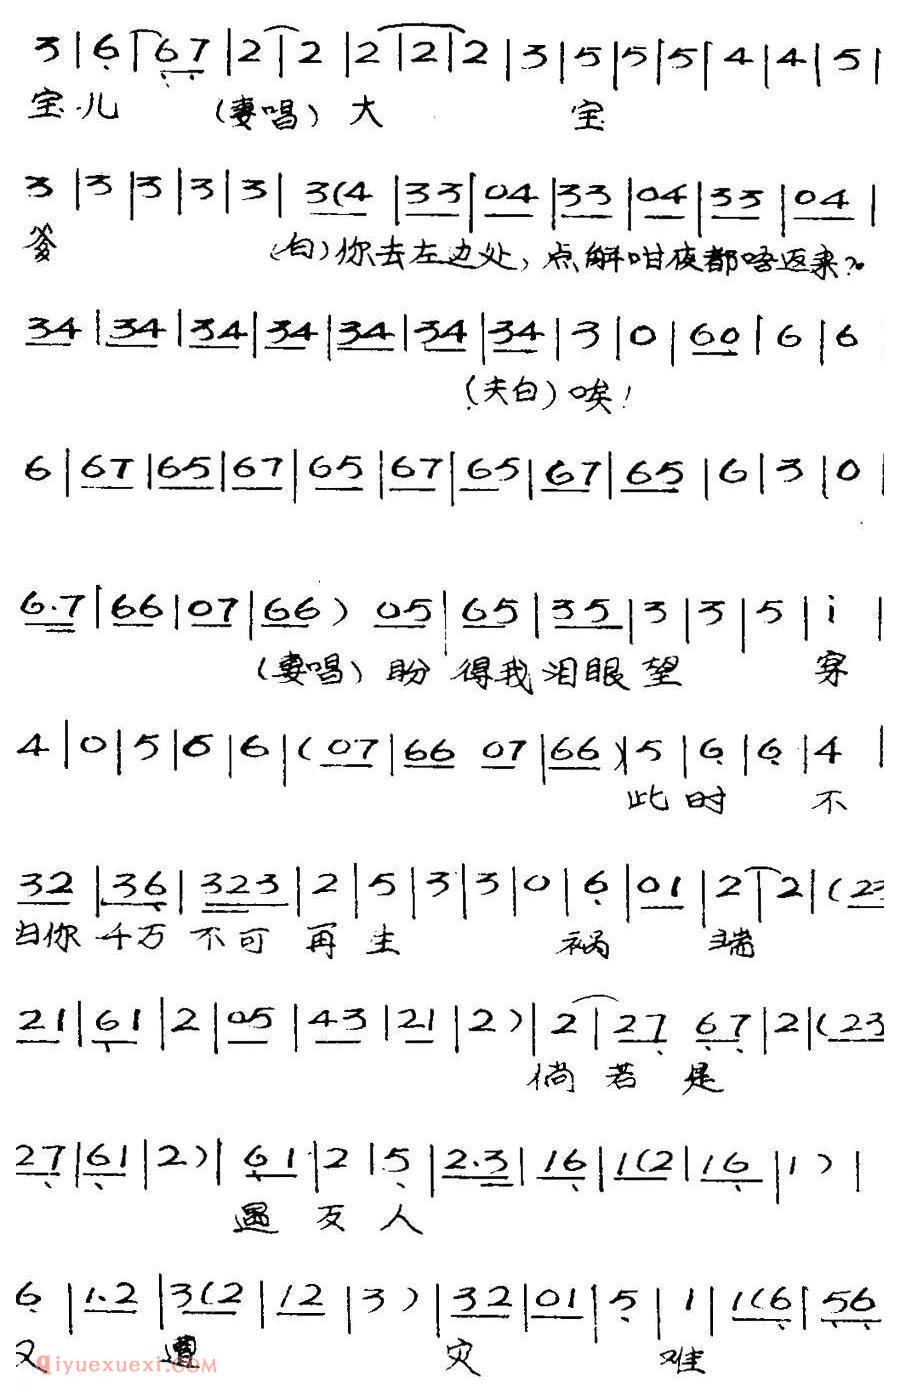 3 | 6 | 67 | 2 | 2 | 2 | 2 | 2 | 3 | 5 | 5 | 5 | 4 | 4 | 5 |
宝儿 (妻唱) 大 宝
3 | 3 | 3 | 3 | 3 | 3(4 | 33 | 04 | 33 | 04 | 33 | 04 |
爹 (白) 你去左边处, 点解咁夜都唔返来?
34 | 34 | 34 | 34 | 34 | 34 | 34 | 3 | 0 | 60 | 6 | 6
(夫白) 唉!
6 | 67 | 65 | 67 | 65 | 67 | 65 | 67 | 65 | 6 | 3 | 0 |
6.7 | 66 | 07 | 66 ) 05 | 65 | 35 | 3 | 3 | 5 | i |
(妻唱) 盼 得我 泪眼 望 穿
4 | 0 | 5 | 6 | 6 | ( 07 | 66 07 | 66 ) | 5 | 6 | 6 | 4 |
此 时 不
32 | 36 | 323 | 2 | 5 | 3 | 3 | 0 | 6 | 01 | 2 | 2 | (23
你 千万 不可 再 生 祸 端
21 | 61 | 2 | 05 | 43 | 21 | 2 ) | 2 | 27 67 | 2 | (23
倘 若 是
27 | 61 | 2 ) | 61 | 2 | 5 | 2.3 | 16 | 1(2 | 16 | 1 ) |
遇 歹 人
6 | 1.2 | 3(2 | 12 | 3 ) | 32 | 01 | 5 | 1 | 1(6 | 56
又 遭 灾 难
qiyuexuexi.com